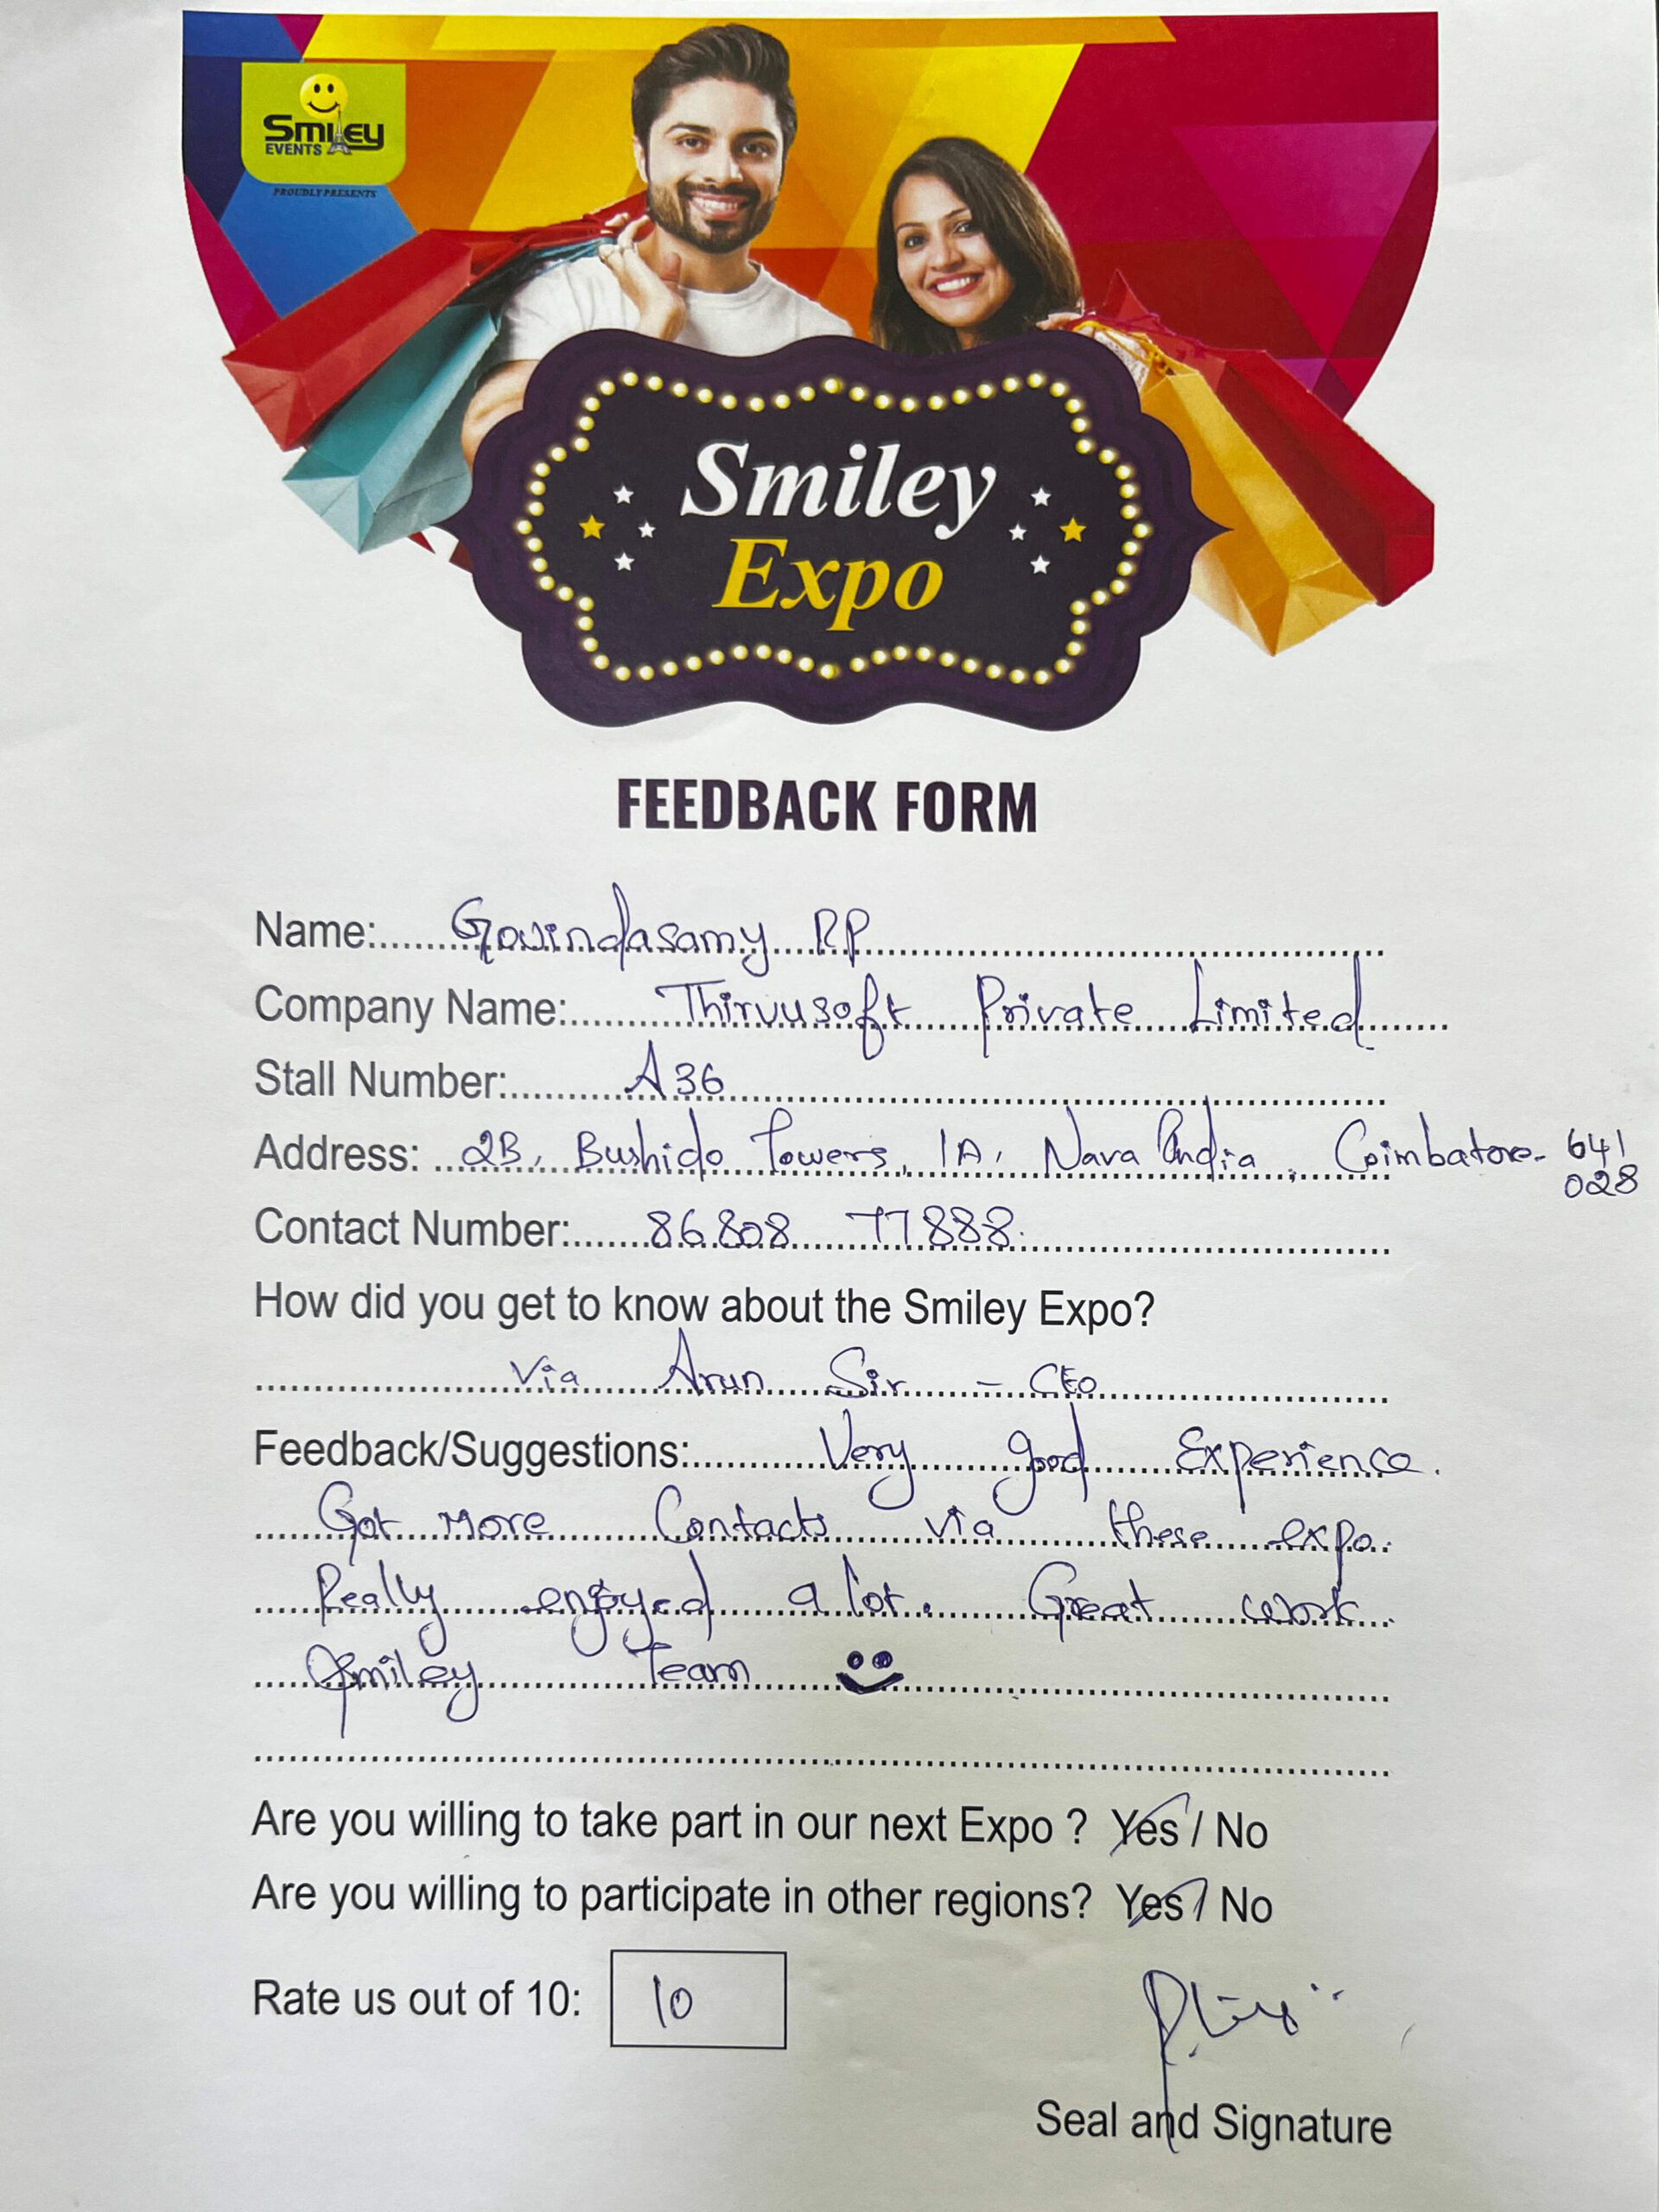 Smiley
EVENTS
PROUDLY PRESENTS
Smiley
Expo
FEEDBACK FORM
Name: Govindasamy RP
Company Name: Thirvusoft Private Limited
Stall Number: A36
Address: 2B, Bushido Towers, 1A, Nava India, Coimbatore- 641
028
Contact Number: 86808 77888.
How did you get to know about the Smiley Expo?
Via Arun Sir - CEO
Feedback/Suggestions: Very good Experience.
Got more Contacts via these expo.
Really enjoyed a lot. Great work
Smiley Team
Are you willing to take part in our next Expo ? Yes / No
Are you willing to participate in other regions? Yes / No
Rate us out of 10: 10
Seal and Signature